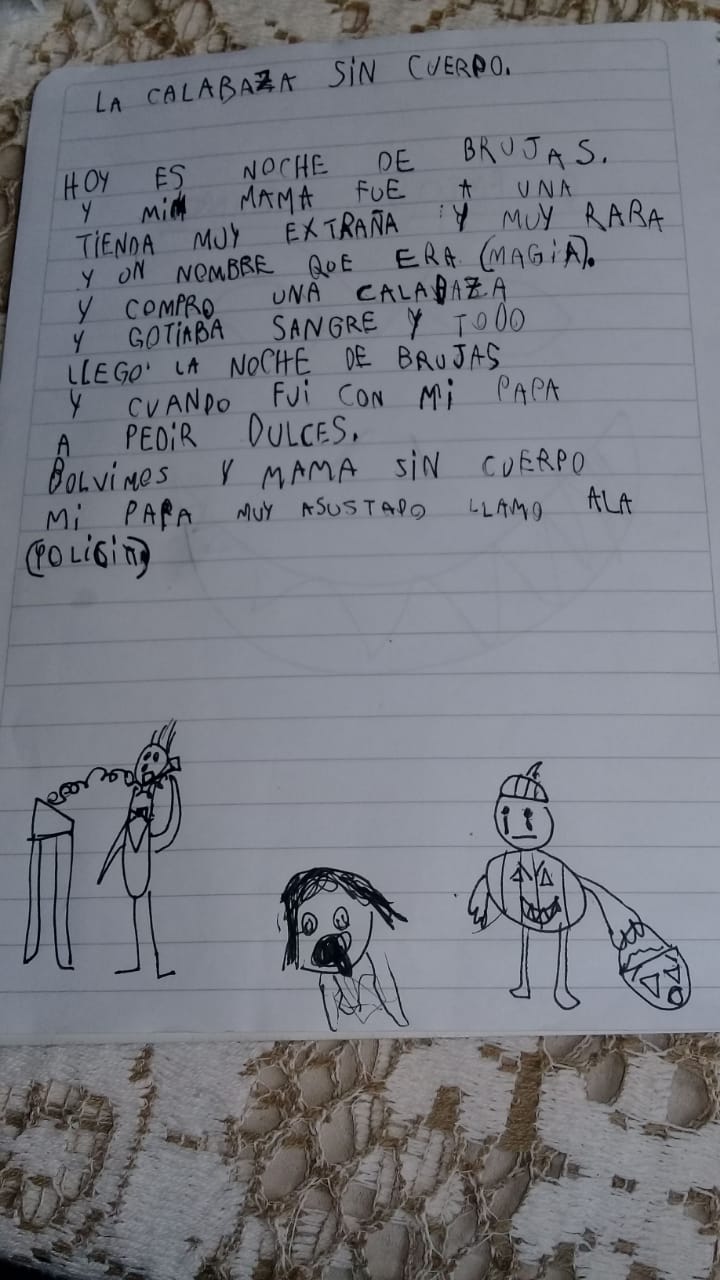 LA CALABAZA SIN CUERPO.
HOY ES NOCHE DE BRUJAS.
Y MI MAMA FUE A UNA
TIENDA MUY EXTRAÑA Y MUY RARA
Y UN NOMBRE QUE ERA (MAGIA).
Y COMPRO UNA CALABAZA
Y GOTIABA SANGRE Y TODO
LLEGO LA NOCHE DE BRUJAS
Y CUANDO FUI CON MI PAPA
A PEDIR DULCES.
BOLVIMOS Y MAMA SIN CUERPO
MI PAPA MUY ASUSTADO LLAMO ALA
(POLICIA)